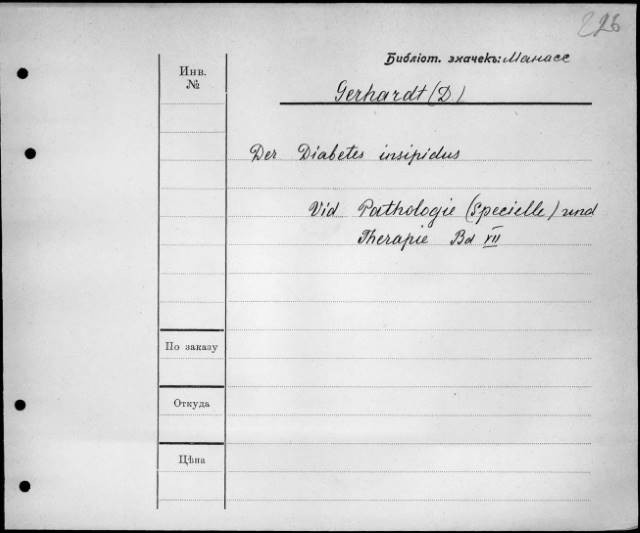 Библіот. значекъ: Манасс
Инв.
№
Gerhardt (D.)
Der Diabetes insipidus
Vid Pathologie (Specielle) und
Therapie Bd VII
По заказу
Откуда
Цѣна